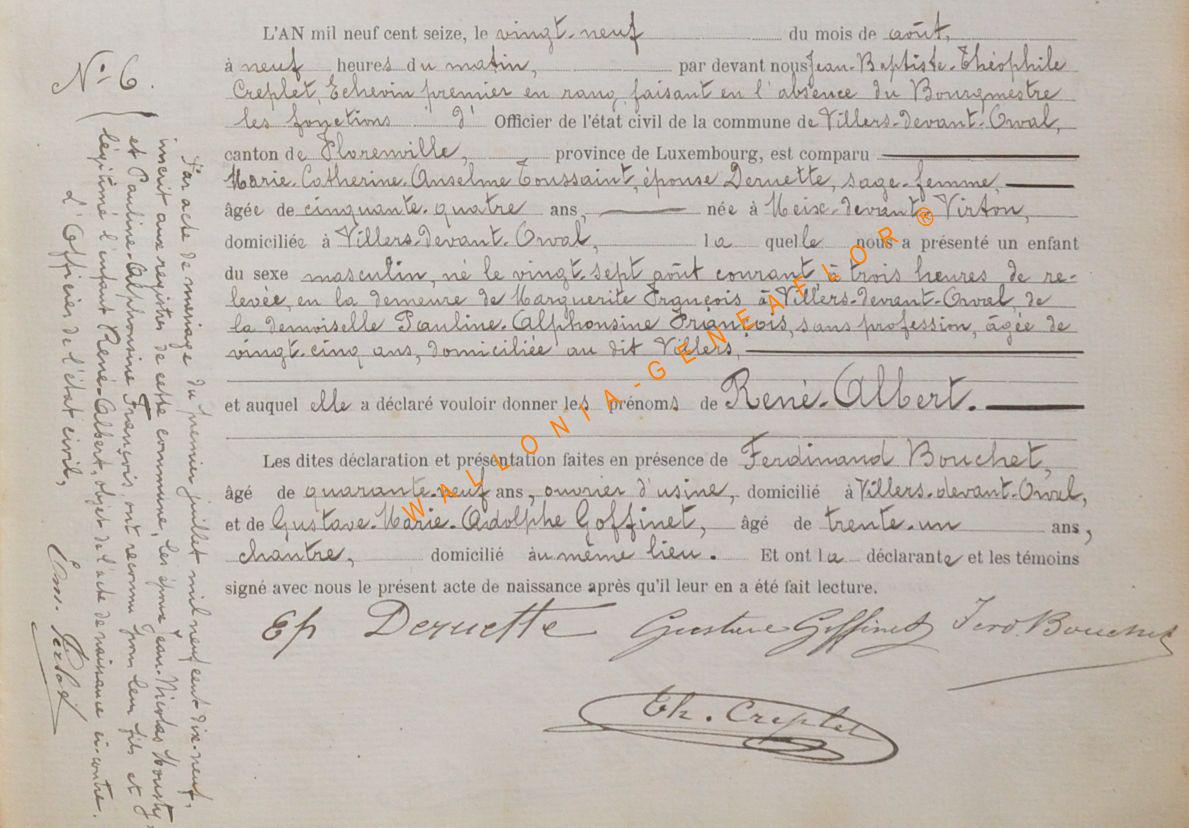 L'AN mil neuf cent seize, le vingt-neuf du mois de août,
à neuf heures du matin, par devant nous Jean-Baptiste-Théophile
Creplet, Echevin premier en rang, faisant en l'absence du Bourgmestre
les fonctions d' Officier de l'état civil de la commune de Villers-devant-Orval,
canton de Florenville, province de Luxembourg, est comparu
Marie-Catherine-Anselme Toussaint, épouse Deruette, sage-femme,
âgée de cinquante-quatre ans, née à Meix-devant-Virton,
domiciliée à Villers-devant-Orval, la quelle nous a présenté un enfant
du sexe masculin, né le vingt-sept août courant à trois heures de re-
levée, en la demeure de Marguerite François à Villers-devant-Orval, de
la demoiselle Pauline-Alphonsine François, sans profession, âgée de
vingt-cinq ans, domiciliée au dit Villers,
et auquel elle a déclaré vouloir donner les prénoms de René-Albert.
Les dites déclaration et présentation faites en présence de Ferdinand Bouchet,
âgé de quarante-neuf ans, ouvrier d'usine, domicilié à Villers-devant-Orval,
et de Gustave-Marie-Adolphe Goffinet, âgé de trente-un ans,
chantre, domicilié au même lieu. Et ont la déclarante et les témoins
signé avec nous le présent acte de naissance après qu'il leur en a été fait lecture.
Ep Deruette Gustave Goffinet Ferd. Bouchet
Th. Creplet
N° 6
Par acte de mariage du premier juillet mil neuf cent dix-neuf,
inscrit aux registres de cette commune, les époux Jean-Nicolas Housty
et Pauline-Alphonsine François ont reconnu pour leur fils et
légitimé l'enfant René-Albert, objet de l'acte de naissance ci-contre.
L'Officier de l'état civil,
WALLONIA-GENEAFLOR®